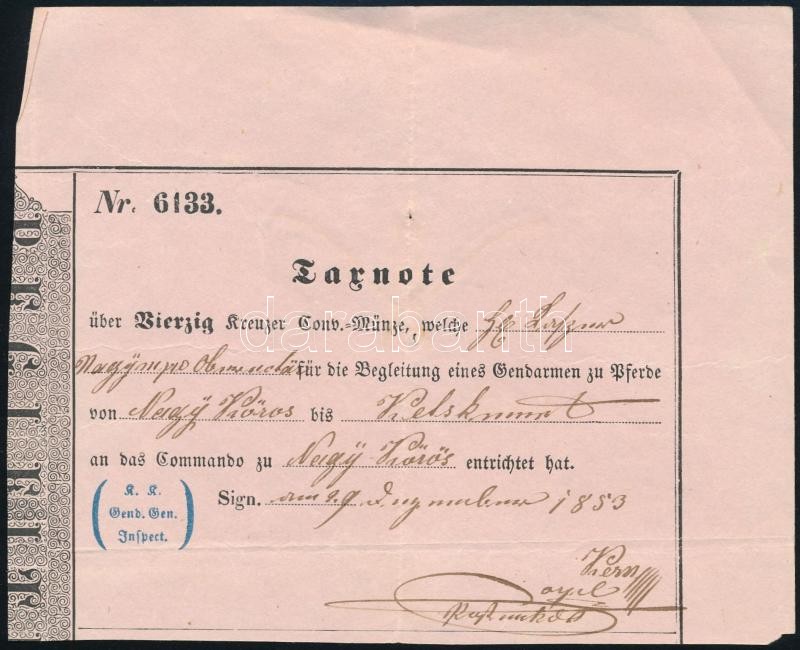 Nr. 6133.
Taxnote
über Vierzig Kreuzer Conv.=Münze, welche
für die Begleitung eines Gendarmen zu Pferde
von Nagÿ Körös bis Ketskemet
an das Commando zu Nagÿ Körös entrichtet hat.
K. K.
Gend. Gen.
Inspect.
Sign. am 29 Dezember 1853
Kern
darabanth
www.darabanth.com